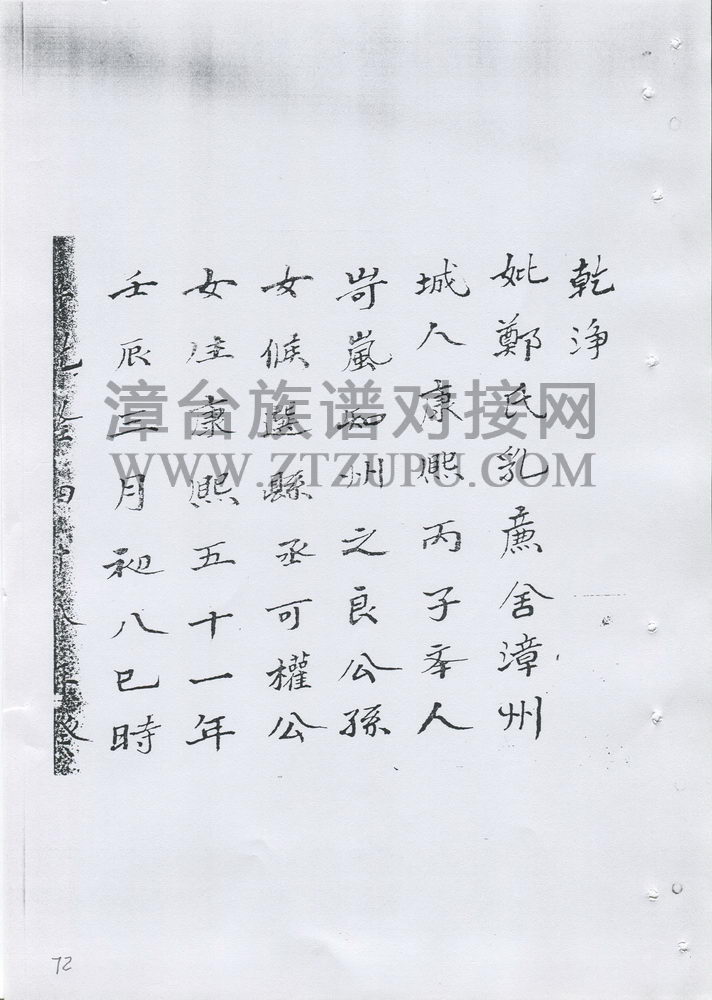 乾淨
妣鄭氏乳廌舍漳州
城人康熙丙子亊人
岢嵐知州之良公孫
女候選縣丞可權公
女生康熙五十一年
壬辰三月初八巳時
漳台族谱对接网
WWW.ZTZUPU.COM
72